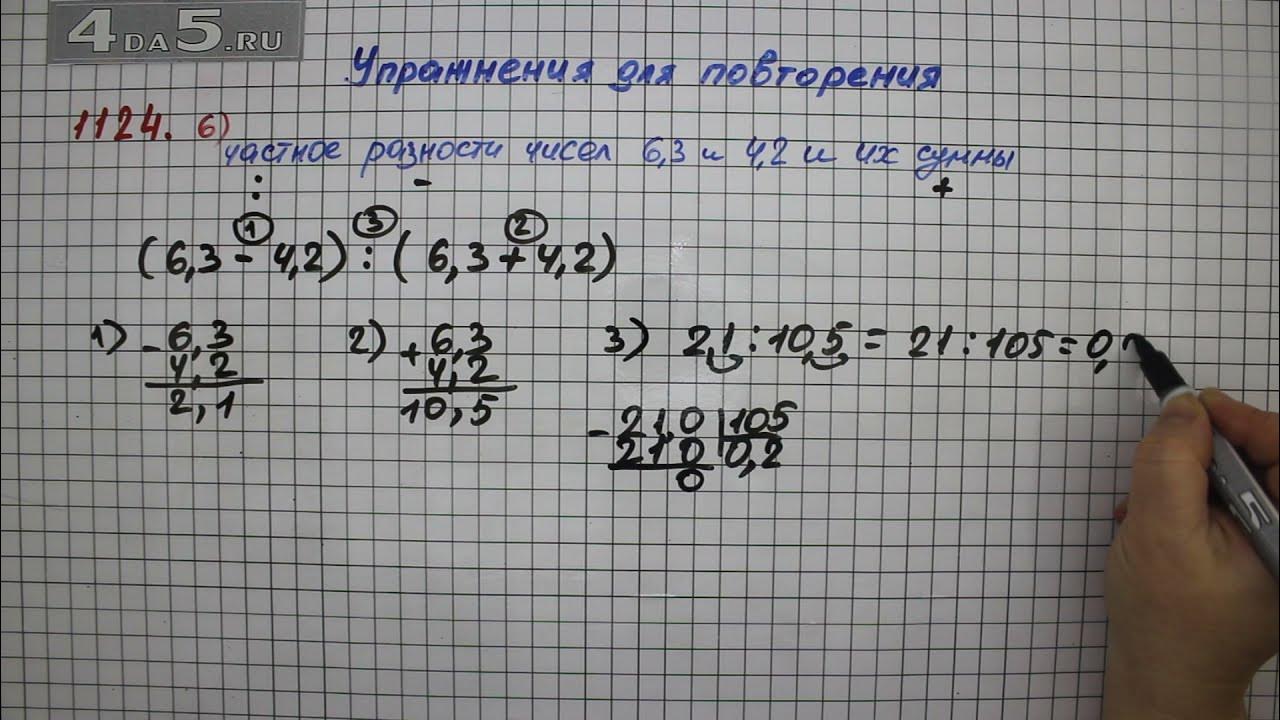 4DA5.RU
Упражнения для повторения
1124. б)
частное разности чисел 6,3 и 4,2 и их суммы
: - +
1 3 2
(6,3 - 4,2) : (6,3 + 4,2)
1) - 6,3 2) + 6,3 3) 2,1 : 10,5 = 21 : 105 = 0,
4,2 4,2
2,1 10,5
- 21,0 105
21 0 0,2
0